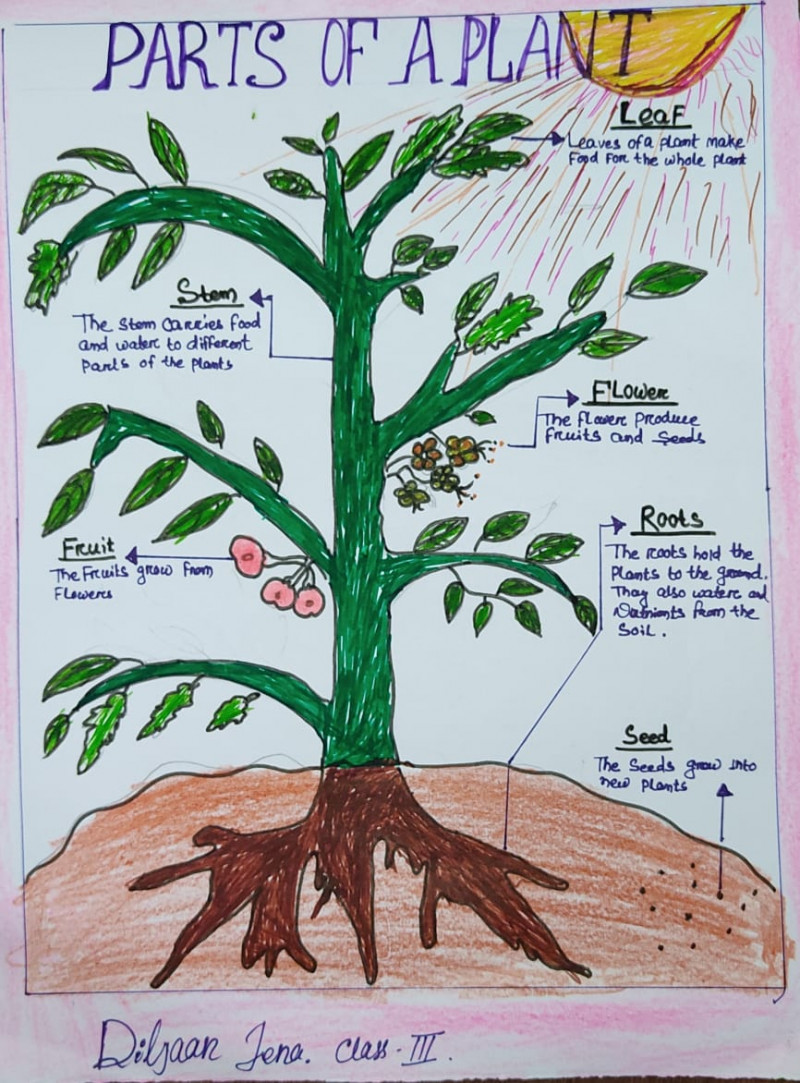 PARTS OF A PLANT
Leaf
Leaves of a plant make
Food For the whole plant
Stem
The Stem Carries Food
and water to different
parts of the plants
Flower
The flower produce
Fruits and Seeds
Roots
The roots hold the
Plants to the ground.
They also water and
Nutrients from the
Soil.
Fruit
The Fruits grow from
Flowers
Seed
The Seeds grow into
new plants
Diljaan Jena. Class - III.